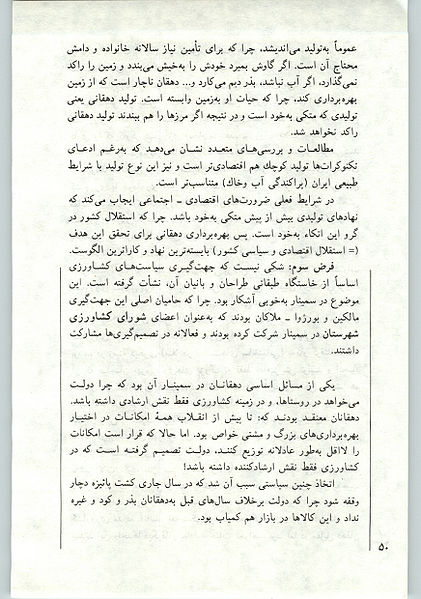 عموماً به‌تولید می‌اندیشد، چرا که برای تأمین نیاز سالانه خانواده و دامش
محتاج آن است. اگر گاوش بمیرد خودش را به‌خیش می‌بندد و زمین را راکد
نمی‌گذارد، اگر آب نباشد، بذر دیم می‌کارد و... دهقان ناچار است که از زمین
بهره‌برداری کند، چرا که حیات او به‌زمین وابسته است. تولید دهقانی یعنی
تولیدی که متکی به‌خود است و در نتیجه اگر مرزها را هم ببندند تولید دهقانی
راکد نخواهد شد.
مطالعات و بررسی‌های متعدد نشان می‌دهد که به‌رغم ادعای
تکنوکرات‌ها تولید کوچك هم اقتصادی‌تر است و نیز این نوع تولید با شرایط
طبیعی ایران (پراکندگی آب وخاك) متناسب‌تر است.
در شرایط فعلی ضرورت‌های اقتصادی ـ اجتماعی ایجاب می‌کند که
نهادهای تولیدی بیش از پیش متکی به‌خود باشد. چرا که استقلال کشور در
گرو این اتکاء به‌خود است. پس بهره‌برداری دهقانی برای تحقق این هدف
(= استقلال اقتصادی و سیاسی کشور) بایسته‌ترین نهاد و کاراترین الگوست.
فرض سوم: شکی نیست که جهت‌گیری سیاست‌های کشاورزی
اساساً از خاستگاه طبقاتی طراحان و بانیان آن، نشأت گرفته است. این
موضوع در سمینار به‌خوبی آشکار بود. چرا که حامیان اصلی این جهت‌گیری
مالکین و بورژوا ـ ملاکان بودند که به‌عنوان اعضای شورای کشاورزی
شهرستان در سمینار شرکت کرده بودند و فعالانه در تصمیم‌گیری‌ها مشارکت
داشتند.
یکی از مسائل اساسی دهقانان در سمینار آن بود که چرا دولت
می‌خواهد در روستاها، و در زمینه کشاورزی فقط نقش ارشادی داشته باشد.
دهقانان معتقد بودند که: تا پیش از انقلاب همهٔ امکانات در اختیار
بهره‌برداری‌های بزرگ و مشتی خواص بود. اما حالا که قرار است امکانات
را لااقل به‌طور عادلانه توزیع کنند، دولت تصمیم گرفته است که در
کشاورزی فقط نقش ارشادکننده داشته باشد!
اتخاذ چنین سیاستی سبب آن شد که در سال جاری کشت پائیزه دچار
وقفه شود چرا که دولت برخلاف سال‌های قبل به‌دهقانان بذر و کود و غیره
نداد و این کالاها در بازار هم کمیاب بود.
۵۰